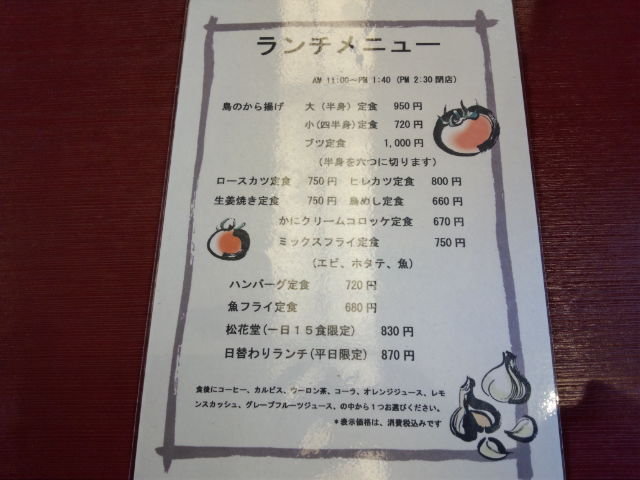 ランチメニュー
AM 11:00～PM 1:40 (PM 2:30 閉店)
鳥のから揚げ 大（半身）定食 950円
小(四半身)定食 720円
ブツ定食 1,000円
（半身を六つに切ります）
ロースカツ定食 750円 ヒレカツ定食 800円
生姜焼き定食 750円 鳥めし定食 660円
かにクリームコロッケ定食 670円
ミックスフライ定食 750円
（エビ、ホタテ、魚）
ハンバーグ定食 720円
魚フライ定食 680円
松花堂(一日１５食限定) 830円
日替わりランチ(平日限定) 870円
食後にコーヒー、カルピス、ウーロン茶、コーラ、オレンジジュース、レモ
ンスカッシュ、グレープフルーツジュース、の中から１つお選びください。
＊表示価格は、消費税込みです